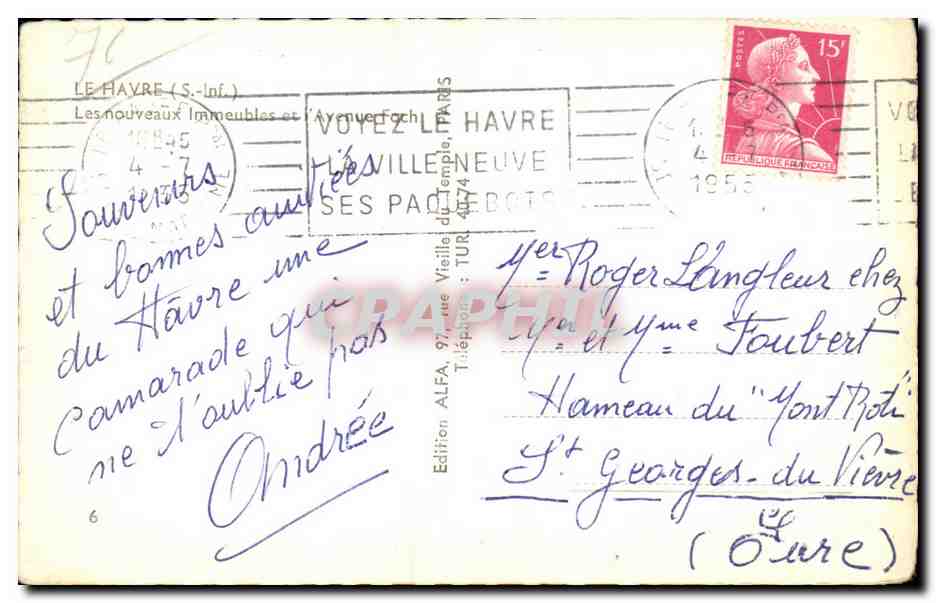 LE HAVRE (S.-Inf.)
Les nouveaux Immeubles et l'Avenue Foch
VOYEZ LE HAVRE
LA VILLE NEUVE
SES PAQUEBOTS
4 - 7
POSTES
15F
REPUBLIQUE FRANÇAISE
1955
Souvenirs
et bonnes amitiés
du Hâvre une
camarade qui
ne t'oublie pas
Andrée
6
Edition ALFA, 97, rue Vieille du Temple, PARIS
Téléphone : TUR. 40-74
CPAPHIL
Roger L'angleur chez
et Mme Foubert
Hameau du "Mont Roti"
St Georges-du Vièvre
(Eure)